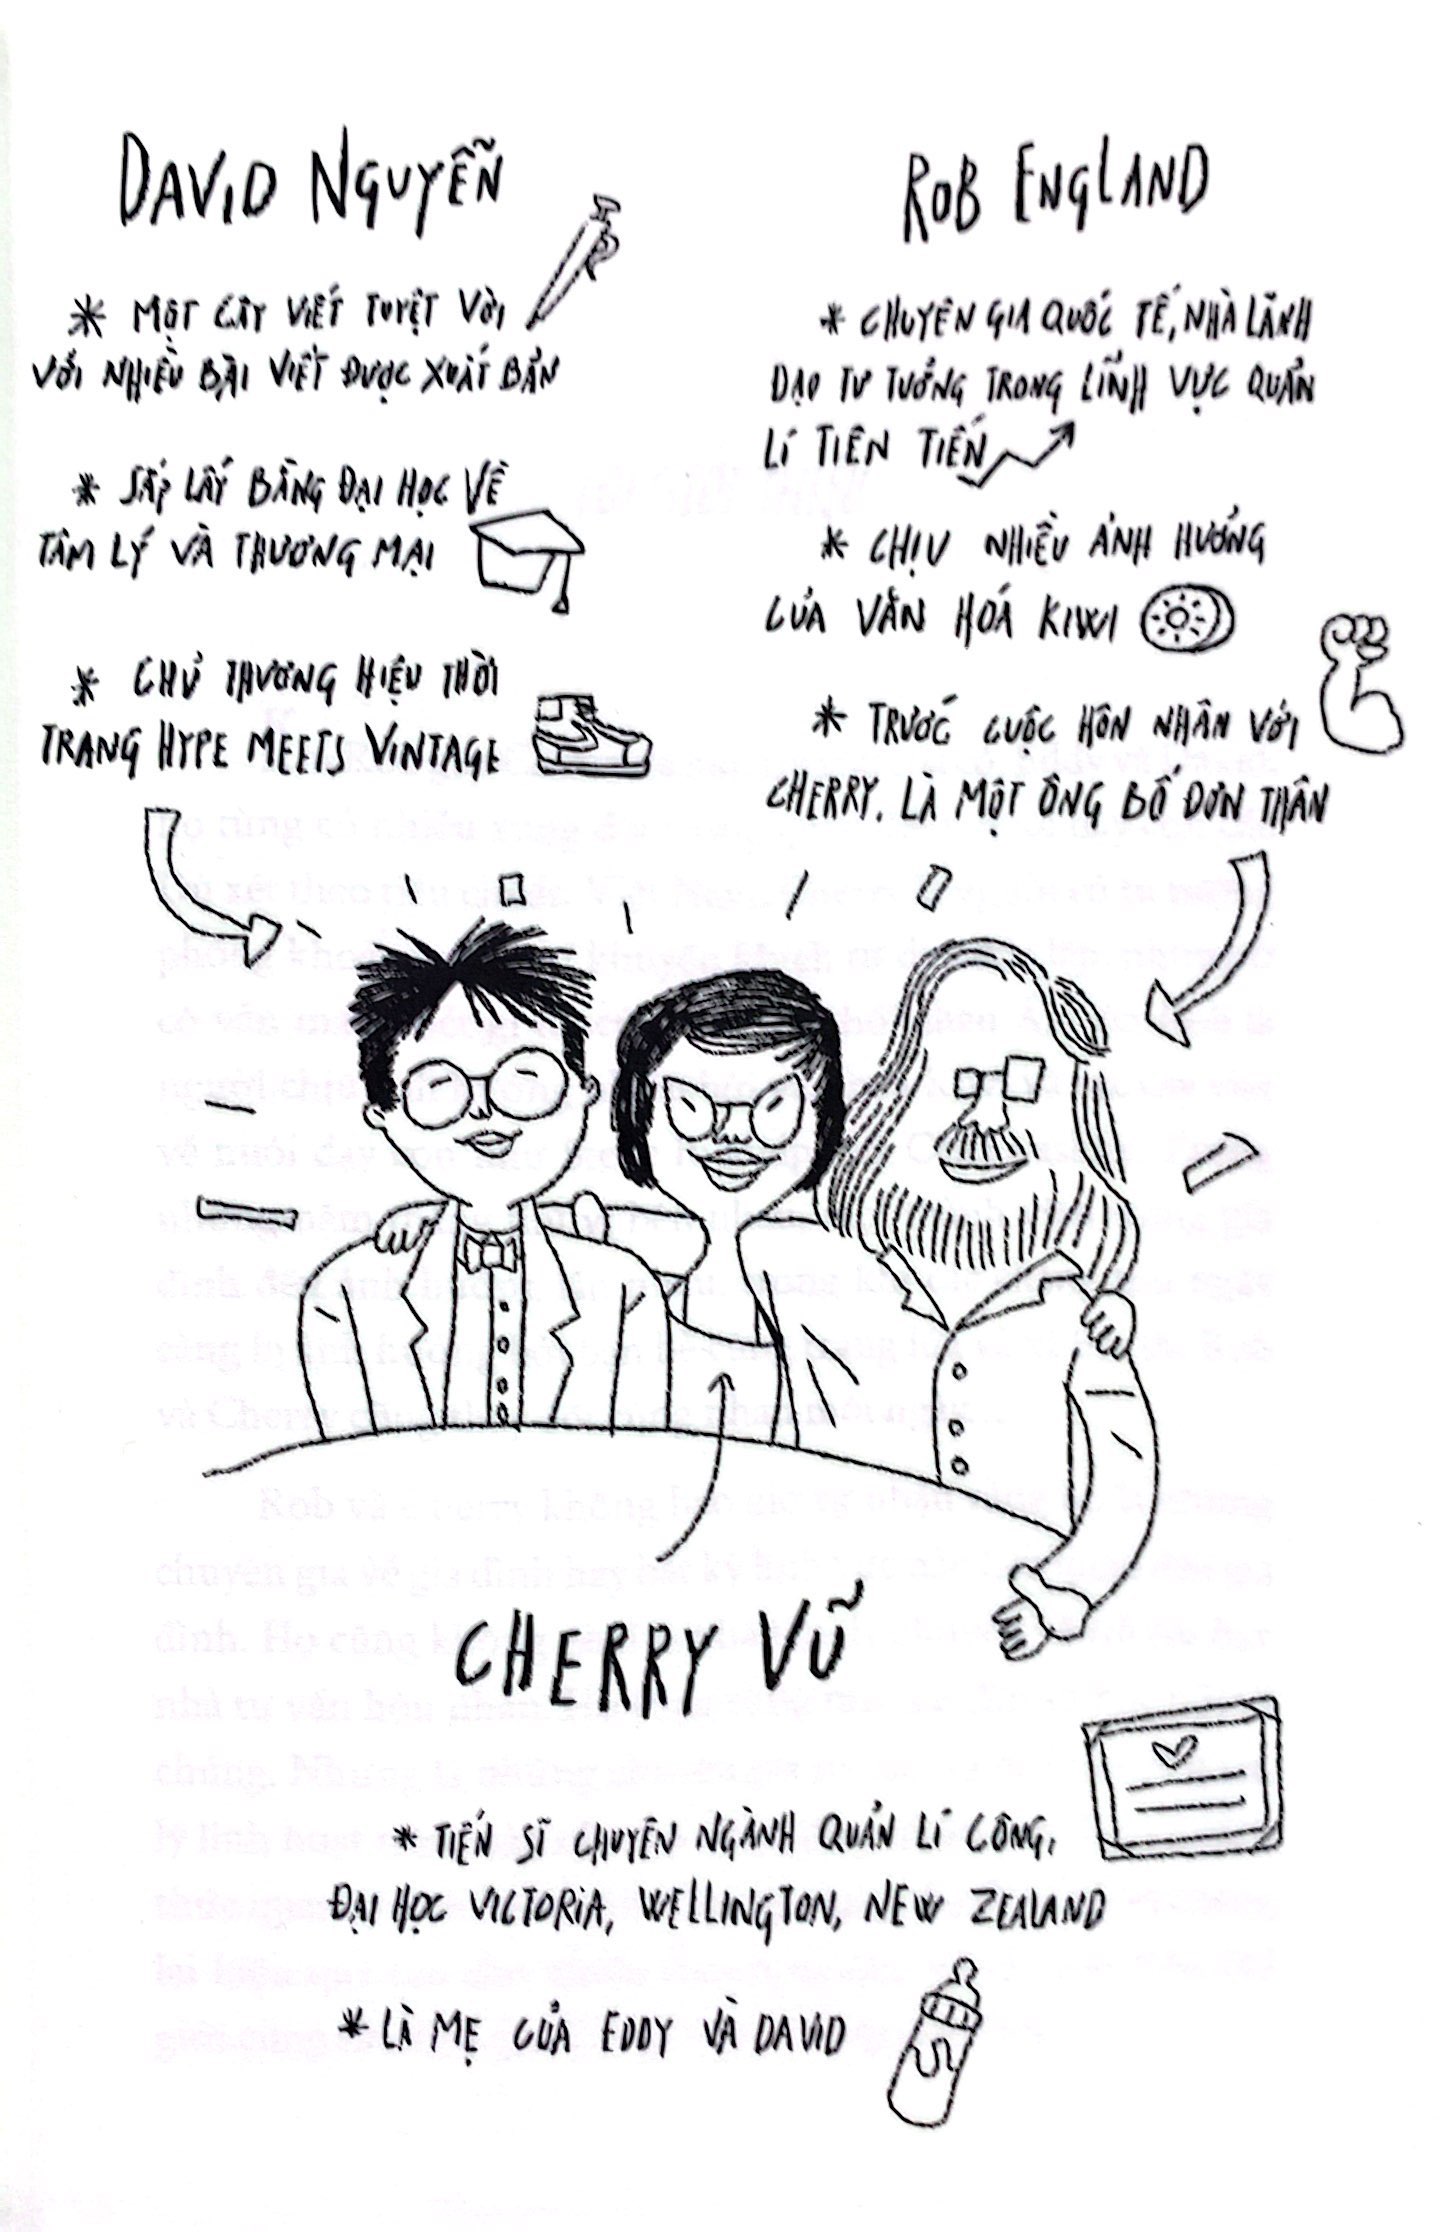 DAVID NGUYỄN
* MỘT CÂY VIẾT TUYỆT VỜI
VỚI NHIỀU BÀI VIẾT ĐƯỢC XUẤT BẢN
* SẮP LẤY BẰNG ĐẠI HỌC VỀ
TÂM LÝ VÀ THƯƠNG MẠI
* CHỦ THƯƠNG HIỆU THỜI
TRANG HYPE MEETS VINTAGE
ROB ENGLAND
* CHUYÊN GIA QUỐC TẾ, NHÀ LÃNH
ĐẠO TƯ TƯỞNG TRONG LĨNH VỰC QUẢN
LÍ TIÊN TIẾN
* CHỊU NHIỀU ẢNH HƯỞNG
CỦA VĂN HOÁ KIWI
* TRƯỚC CUỘC HÔN NHÂN VỚI
CHERRY, LÀ MỘT ÔNG BỐ ĐƠN THÂN
CHERRY VŨ
* TIẾN SĨ CHUYÊN NGÀNH QUẢN LÍ CÔNG,
ĐẠI HỌC VICTORIA, WELLINGTON, NEW ZEALAND
* LÀ MẸ CỦA EDDY VÀ DAVID